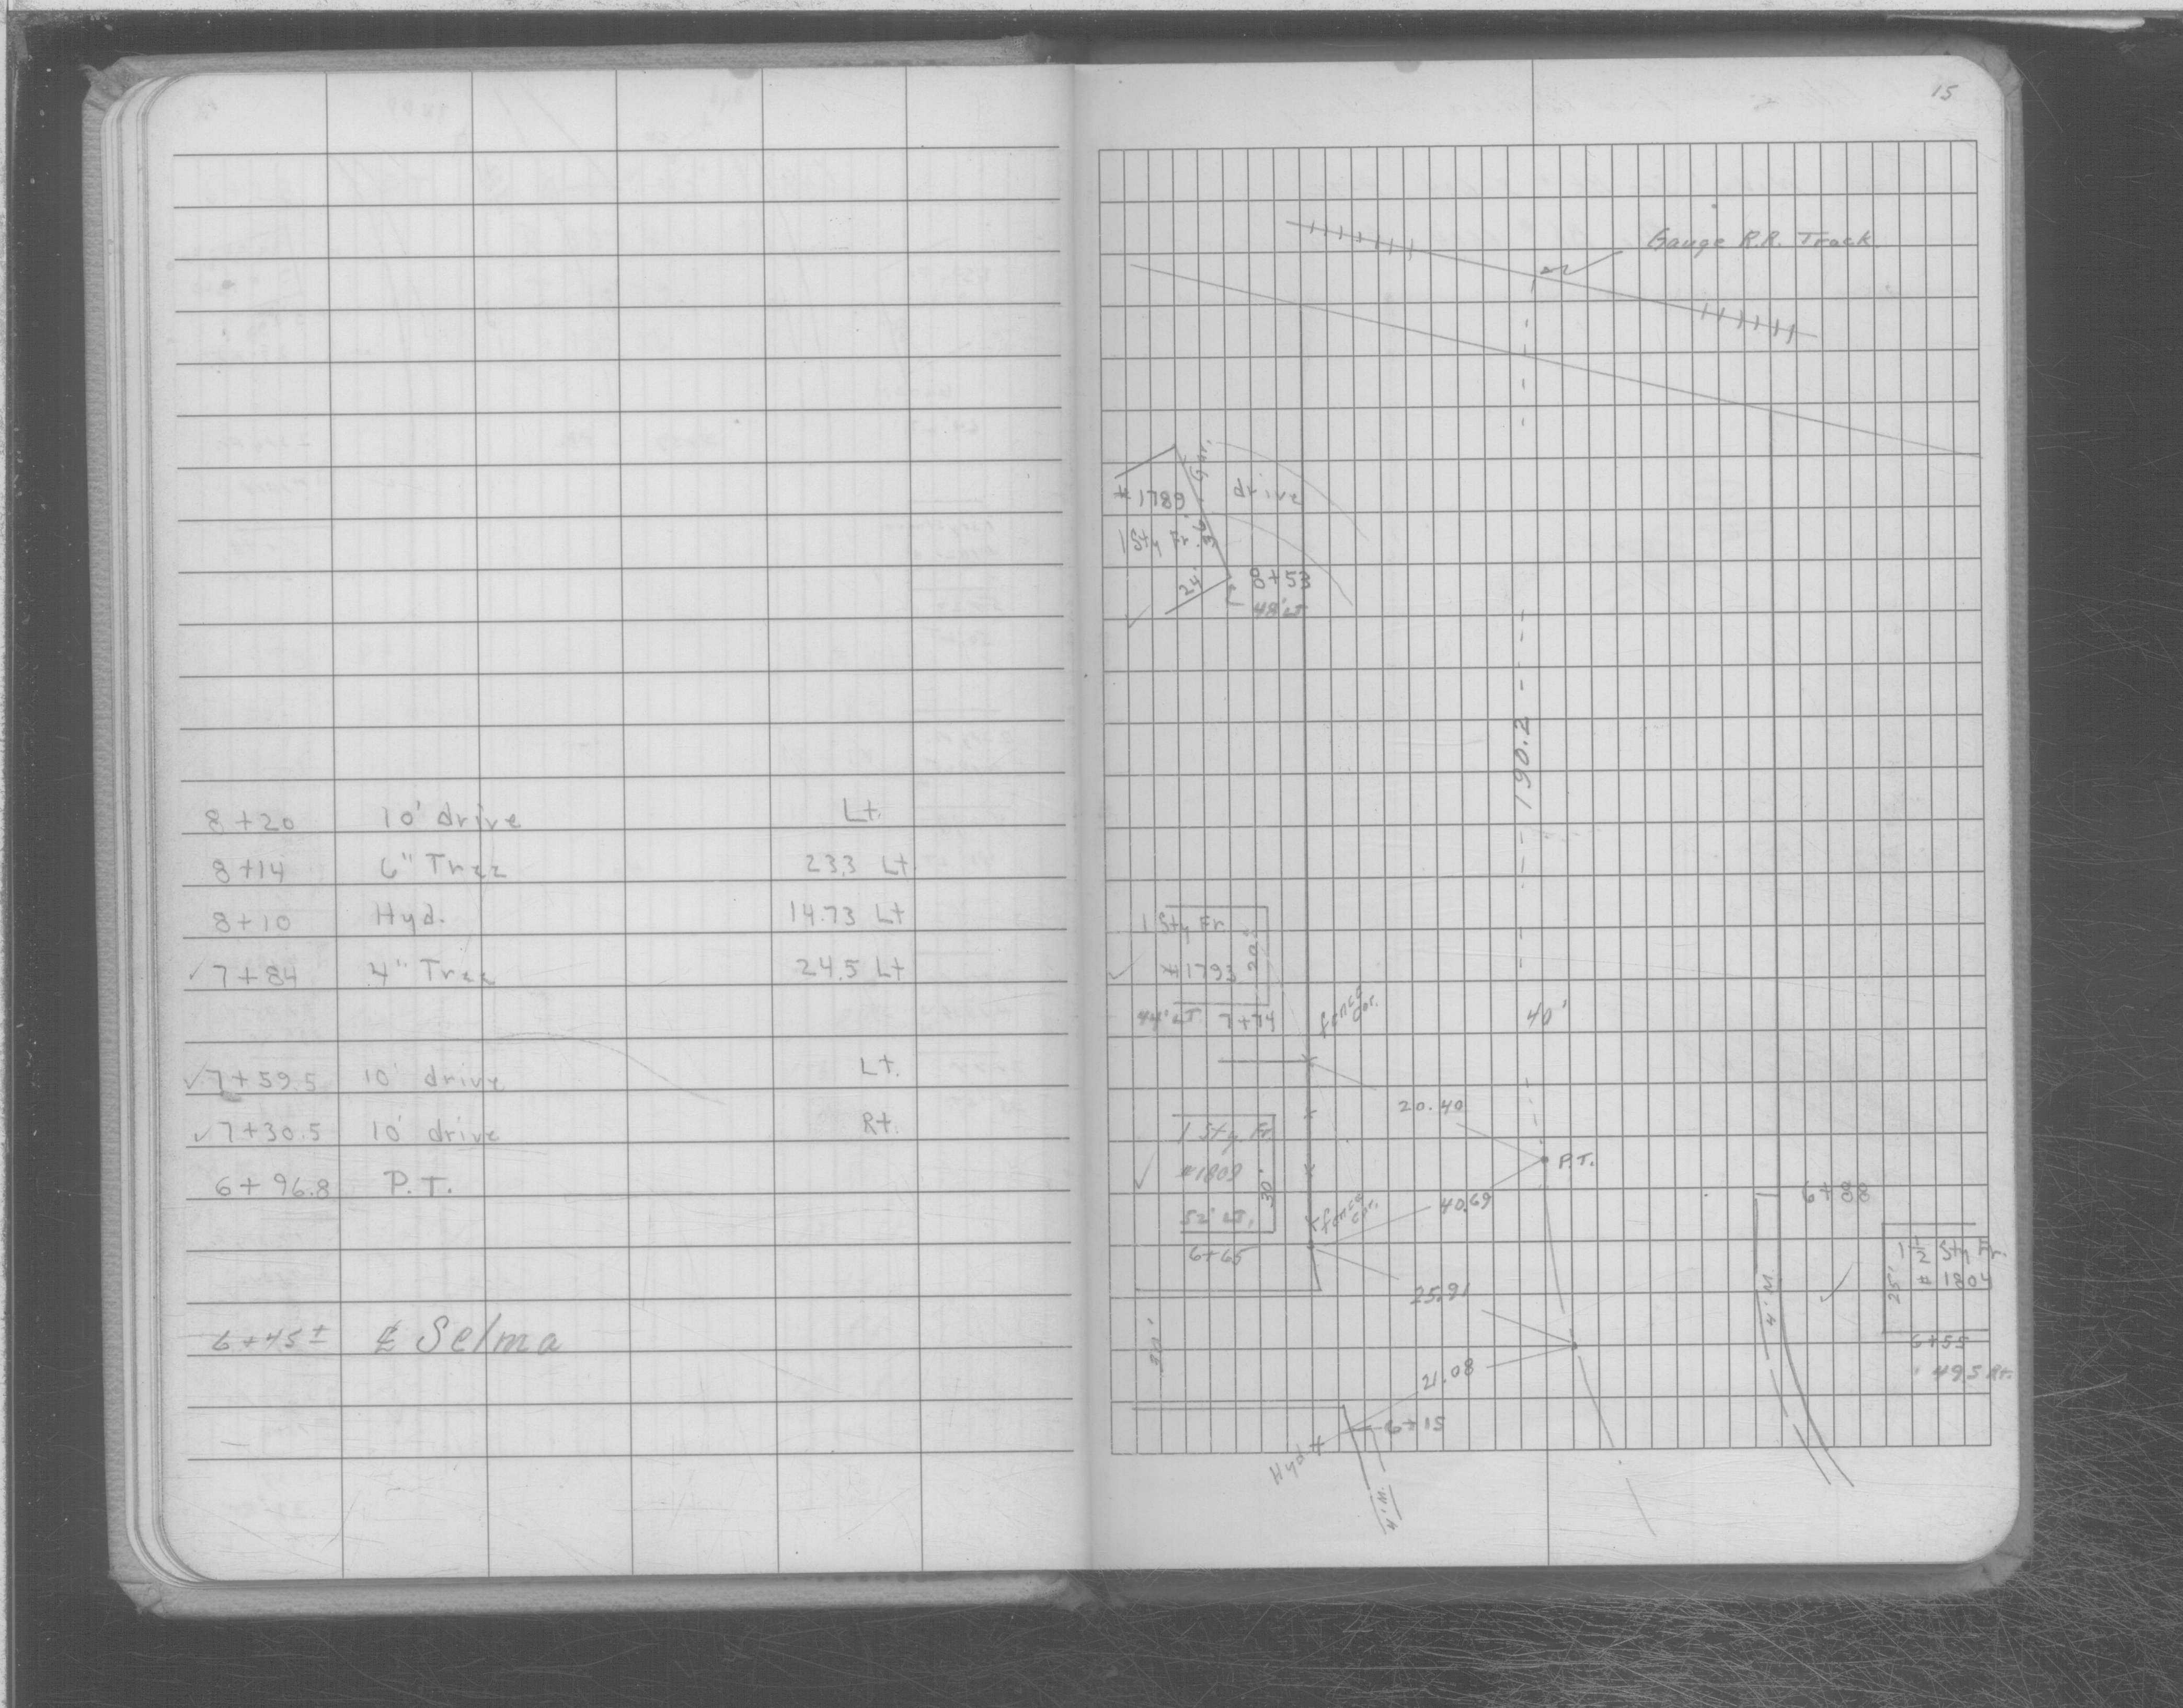 8+20 10' drive Lt.
8+14 6" Tree 23.3 Lt.
8+10 Hyd. 14.73 Lt
✓ 7+84 4" Tree 24.5 Lt
✓ 7+59.5 10' drive Lt.
✓ 7+30.5 10' drive Rt.
6+96.8 P.T.
6+45± ℄ Selma
15
Gauge R.R. Track
Gar.
#1789
drive
1 Sty Fr.
36'
24'
8+53
48' LT
190.2
1 Sty Fr
#1793
20'
44' LT 7+74
fence cor.
40'
20.40
1 Sty Fr
30'
52' LT.
6+65
P.T.
40.69
fence cor.
6+88
1½ Sty Fr.
#1804
25'
6+55
49.5 Rt.
4' W
25.91
30'
21.08
6+15
Hyd
4' W.